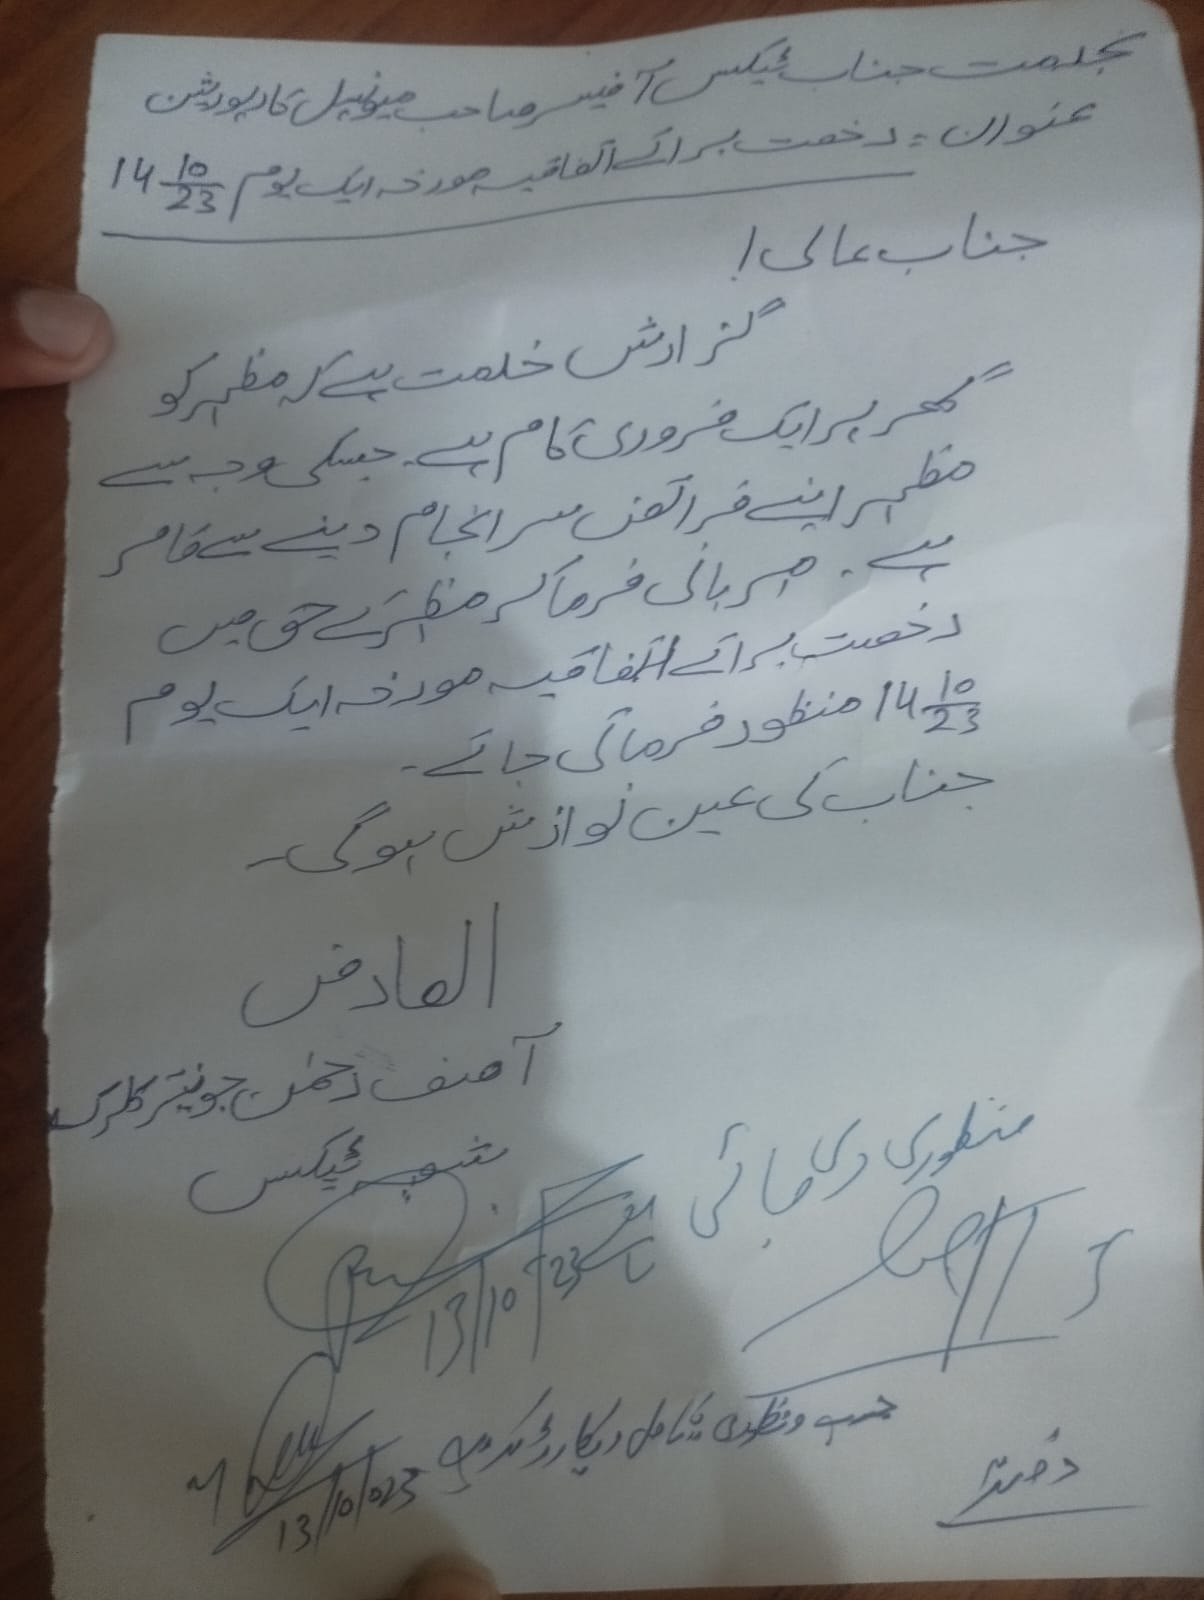 بخدمت جناب ٹیکس آفیسر صاحب میونسپل کارپوریشن
عنوان :- رخصت برائے اتفاقیہ مورخہ ایک یوم 14 10/23
جناب عالی!
گزارش خدمت ہے کہ مظہر کو
گھر پر ایک ضروری کام ہے۔ جسکی وجہ سے
مظہر اپنے فرائض سرانجام دینے سے قاصر
ہے۔ مہربانی فرما کر مظہر کے حق میں
رخصت برائے اتفاقیہ مورخہ ایک یوم
14 10/23 منظور فرمائی جائے۔
جناب کی عین نوازش ہوگی۔
العارض
آصف رحمٰن جونیئر کلرک
شعبہ ٹیکس
منظوری دی جائے
13/10/23
حسب منظوری شامل ریکارڈ کریں
13/10/023